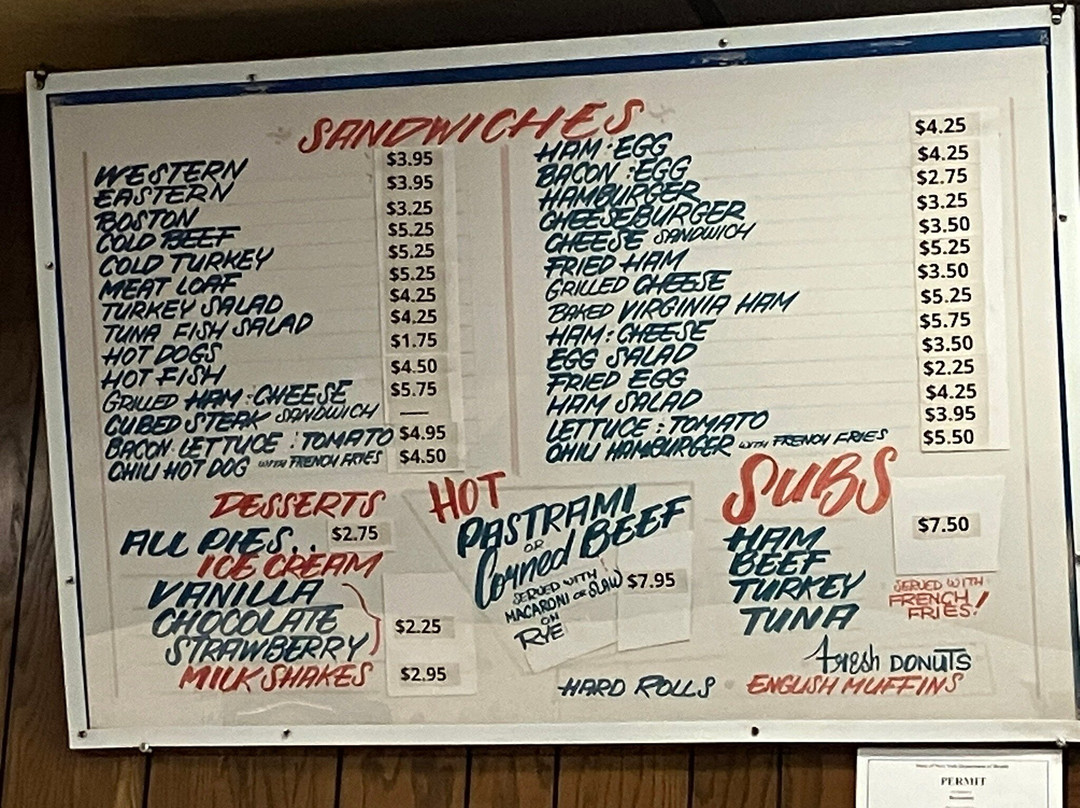 SANDWICHES
WESTERN $3.95
EASTERN $3.95
BOSTON $3.25
COLD BEEF $5.25
COLD TURKEY $5.25
MEAT LOAF $5.25
TURKEY SALAD $4.25
TUNA FISH SALAD $4.25
HOT DOGS $1.75
HOT FISH $4.50
GRILLED HAM : CHEESE $5.75
CUBED STEAK SANDWICH —
BACON LETTUCE : TOMATO $4.95
CHILI HOT DOG WITH FRENCH FRIES $4.50
HAM : EGG $4.25
BACON : EGG $4.25
HAMBURGER $2.75
CHEESEBURGER $3.25
CHEESE SANDWICH $3.50
FRIED HAM $5.25
GRILLED CHEESE $3.50
BAKED VIRGINIA HAM $5.25
HAM : CHEESE $5.75
EGG SALAD $3.50
FRIED EGG $2.25
HAM SALAD $4.25
LETTUCE : TOMATO $3.95
CHILI HAMBURGER WITH FRENCH FRIES $5.50
DESSERTS
ALL PIES. . $2.75
ICE CREAM
VANILLA
CHOCOLATE $2.25
STRAWBERRY
MILK SHAKES $2.95
HOT
PASTRAMI
OR
Corned BEEF
SERVED WITH
MACARONI OR SLAW $7.95
ON
RYE
SUBS
HAM $7.50
BEEF
TURKEY
TUNA
SERVED WITH
FRENCH
FRIES!
fresh DONUTS
HARD ROLLS ENGLISH MUFFINS
PERMIT